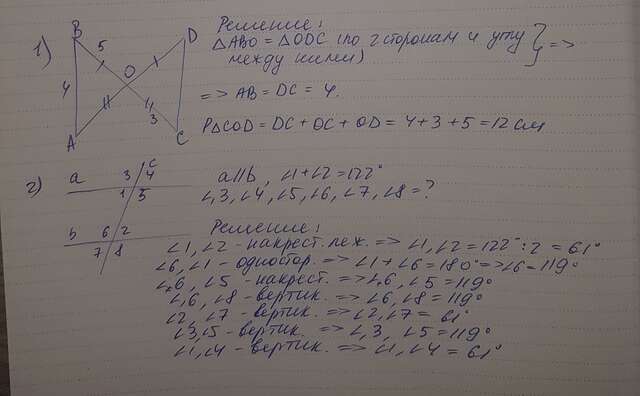 1)
B
5
D
O
4
3
A
C
Решение:
△ABO = △ODC (по 2 сторонам и углу
между ними) } =>
=> AB = DC = 4.
P△COD = DC + OC + OD = 4 + 3 + 5 = 12 см
2)
a 3 c 4
1 5
b 6 2
7 8
a||b, ∠1+∠2=122°
∠3, ∠4, ∠5, ∠6, ∠7, ∠8 = ?
Решение:
∠1, ∠2 - накрест. леж. => ∠1, ∠2 = 122° : 2 = 61°
∠6, ∠1 - одностор. => ∠1 + ∠6 = 180° => ∠6 = 119°
∠6, ∠5 - накрест. => ∠6, ∠5 = 119°
∠6, ∠8 - вертик. => ∠6, ∠8 = 119°
∠2, ∠7 - вертик. => ∠2, ∠7 = 61°
∠3, ∠5 - вертик. => ∠3, ∠5 = 119°
∠1, ∠4 - вертик. => ∠1, ∠4 = 61°